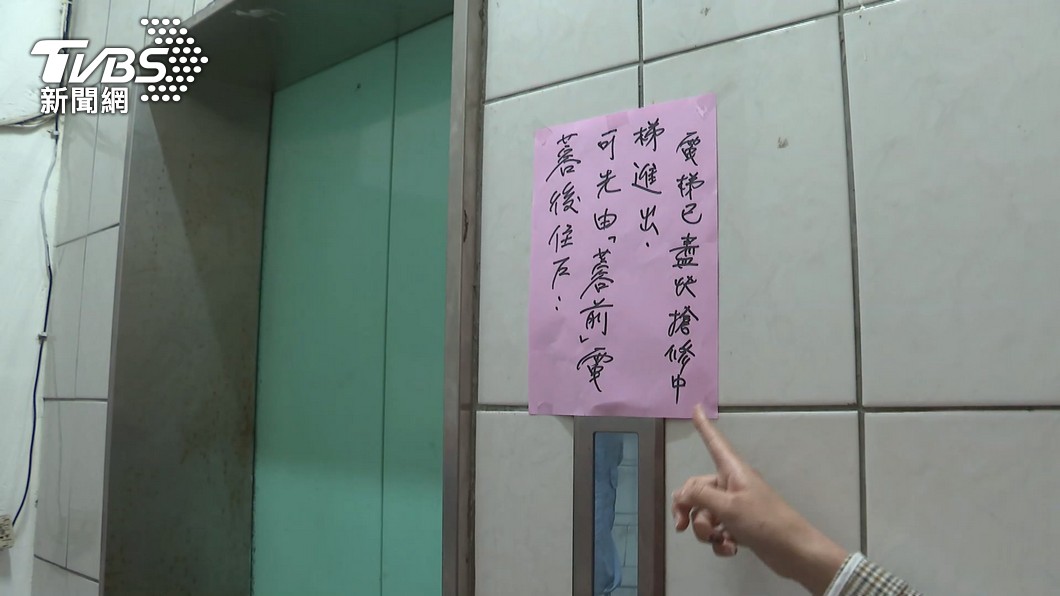 TVBS
新聞網
蓉後住戶：
可先由「蓉前」電
梯進出.
電梯已盡快搶修中